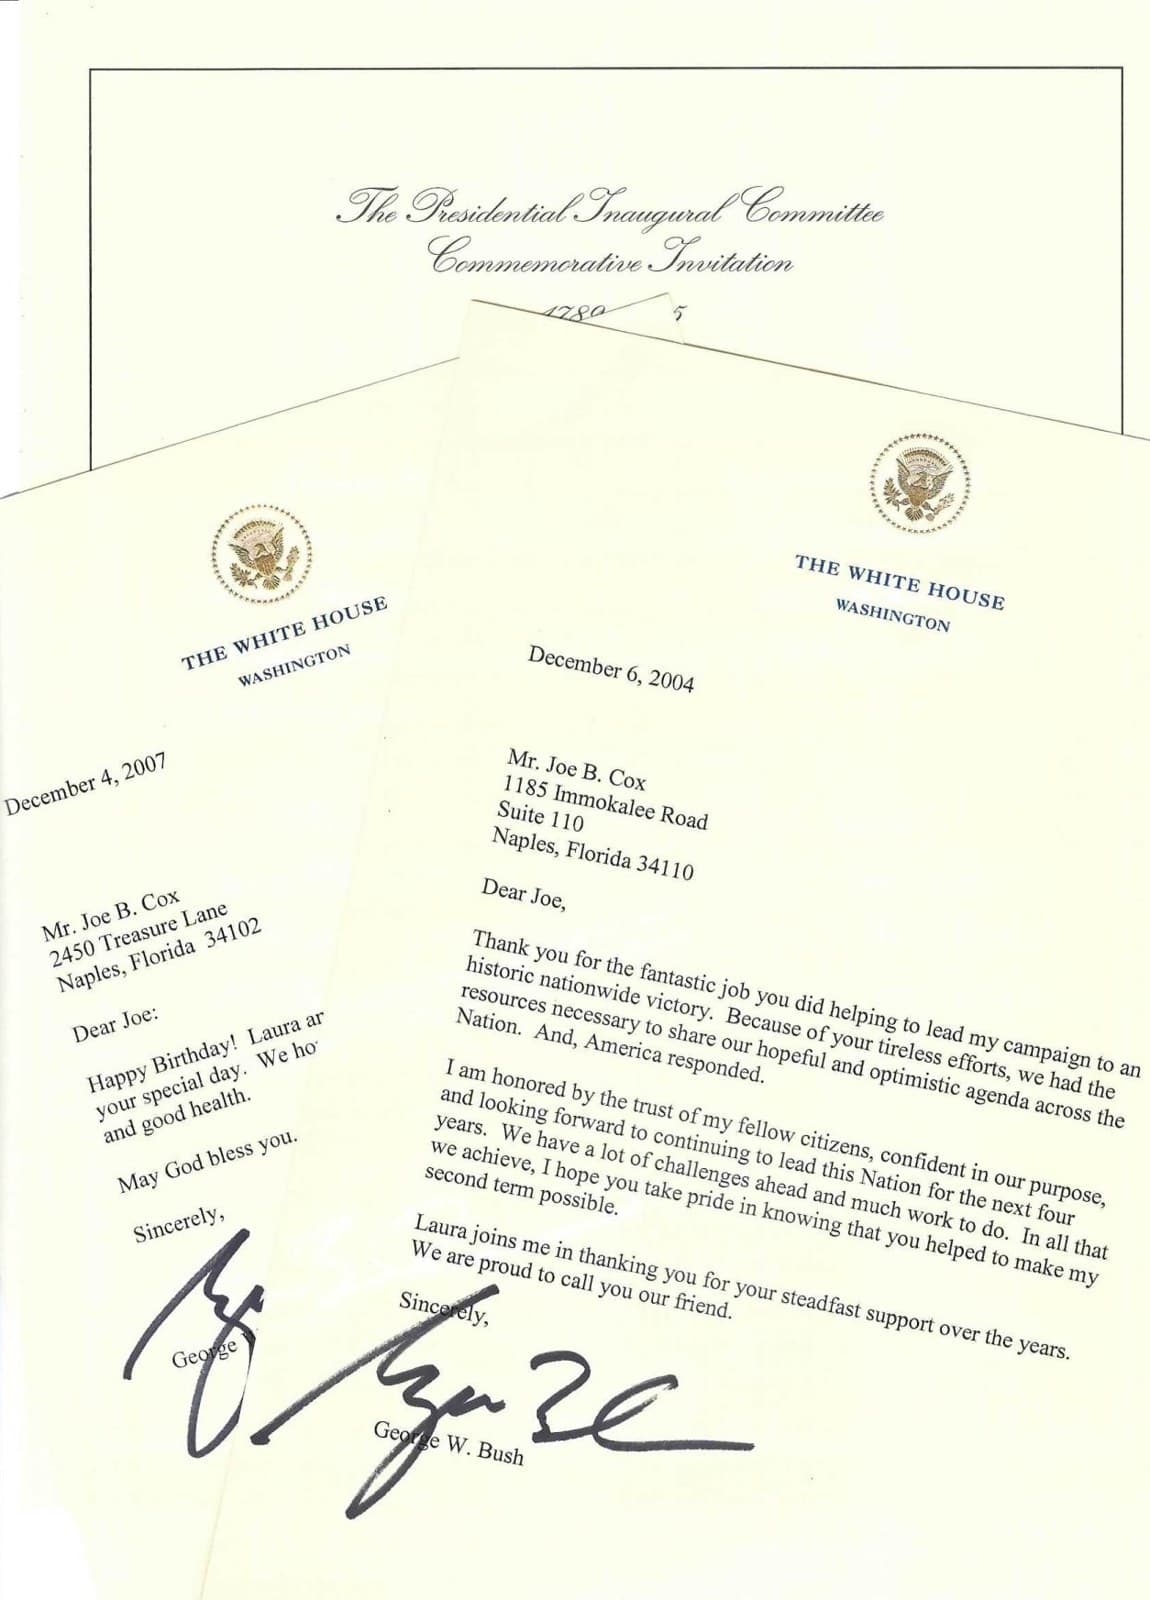 The Presidential Inaugural Committee
Commemorative Invitation
THE WHITE HOUSE
WASHINGTON
December 4, 2007
Mr. Joe B. Cox
2450 Treasure Lane
Naples, Florida 34102
Dear Joe:
Happy Birthday! Laura
your special day. We
and good health.
May God bless you.
Sincerely,
George
THE WHITE HOUSE
WASHINGTON
December 6, 2004
Mr. Joe B. Cox
1185 Immokalee Road
Suite 110
Naples, Florida 34110
Dear Joe,
Thank you for the fantastic job you did helping to lead my campaign to an
historic nationwide victory. Because of your tireless efforts, we had the
resources necessary to share our hopeful and optimistic agenda across the
Nation. And, America responded.
I am honored by the trust of my fellow citizens, confident in our purpose,
and looking forward to continuing to lead this Nation for the next four
years. We have a lot of challenges ahead and much work to do. In all that
we achieve, I hope you take pride in knowing that you helped to make my
second term possible.
Laura joins me in thanking you for your steadfast support over the years.
We are proud to call you our friend.
Sincerely,
George W. Bush